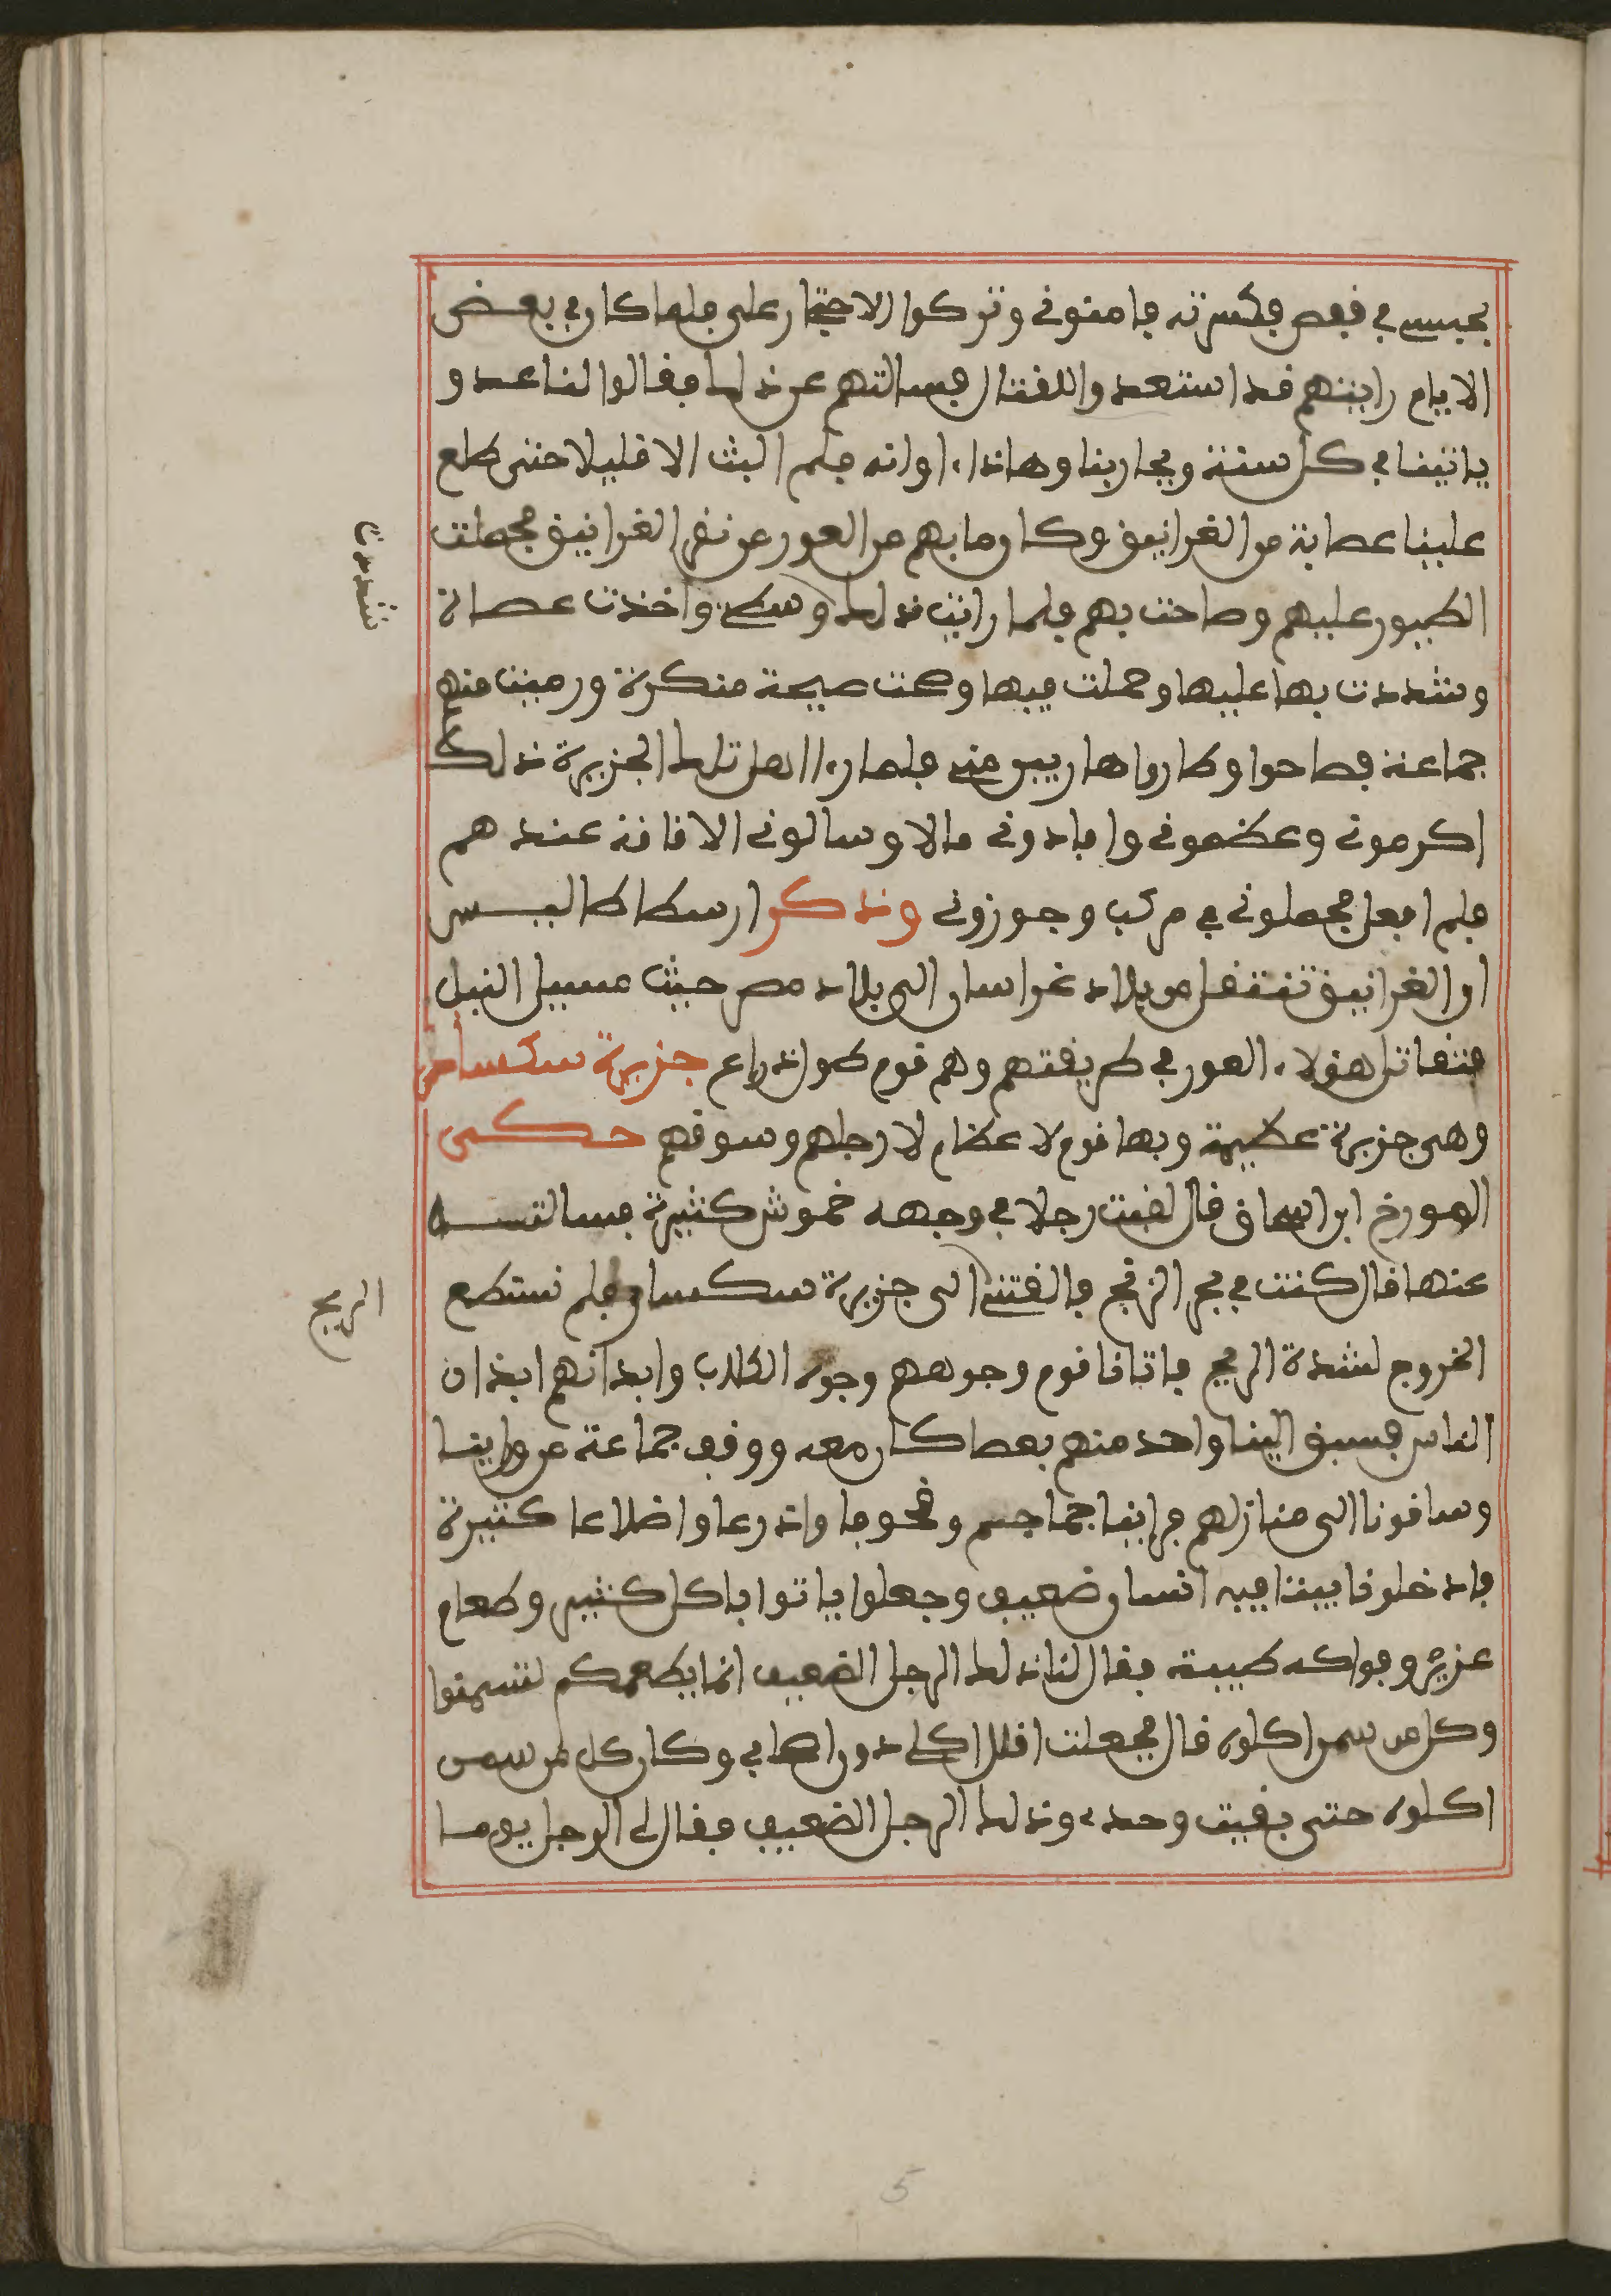 بحبسي في قفص فكسرته فامنوني وتركوا الاحتجار على فلما كان في بعض
الايام رايتهم قد استعدوا للقتال فسالتهم عن ذلك فقالوا لنا عدو
ياتينا في كل سنة ويحاربنا وهاذا اوانه فلم البث الا قليلا حتى طلع
علينا عصابة من الغرانيق وكان ما بهم من العور من نقر الغرانيق فحملت
الطيور عليهم وصاحت بهم فلما رايت ذلك وسطي واخذت عصاة
وشددت بها عليها وحملت فيها وصحت صيحة منكرة ورميت منهم
جماعة فصاحوا وطاروا هاربين مني فلما راا اهل تلك الجزيرة ذلك
اكرموني وعظموني وافادوني مالا وسالوني الاقانة عندهم
فلم افعل فحملوني في مركب وجوزوني وذكر ارسطاطاليس
ان الغرانيق تنتقل من بلاد خراسان الى بلاد مصر حيث مسيل النيل
فتقاتل هؤلاء العور في طريقتهم وهم قوم طول ذراع جزيرة سكسار
وهي جزيرة عظيمة وبها قوم لا عظام لارجلهم وسوقهم حكى
المورخ ابن اسحاق قال لقيت رجلا في وجهه خموش كثيرة فسالتـــه
عنها قال كنت في بحر الزنج فالقتني الى جزيرة سكسار فلم نستطع
الخروج لشدة الريح فاتانا قوم وجوههم وجوه الكلاب وابدانهم ابدان
الناس فسبق الينا واحد منهم بعصا كان معه ووقف جماعة من وراينا
وساقونا الى منازلهم فراينا جماجم وقحوفا واذرعا واضلاعا كثيرة
فادخلونا بيتا فيه انسان ضعيف وجعلوا ياتوا باكل كثير وطعام
عزيز وفواكه طيبة فقال لنا ذلك الرجل الضعيف انما يطعمكم لتسمنوا
وكل من سمن اكلوه قال فجعلت اقلل اكلي دون اصحابي وكان كل من سمن
اكلوه حتى بقيت وحدي وذلك الرجل الضعيف فقال لي الرجل يوما
شددت
الريح
5